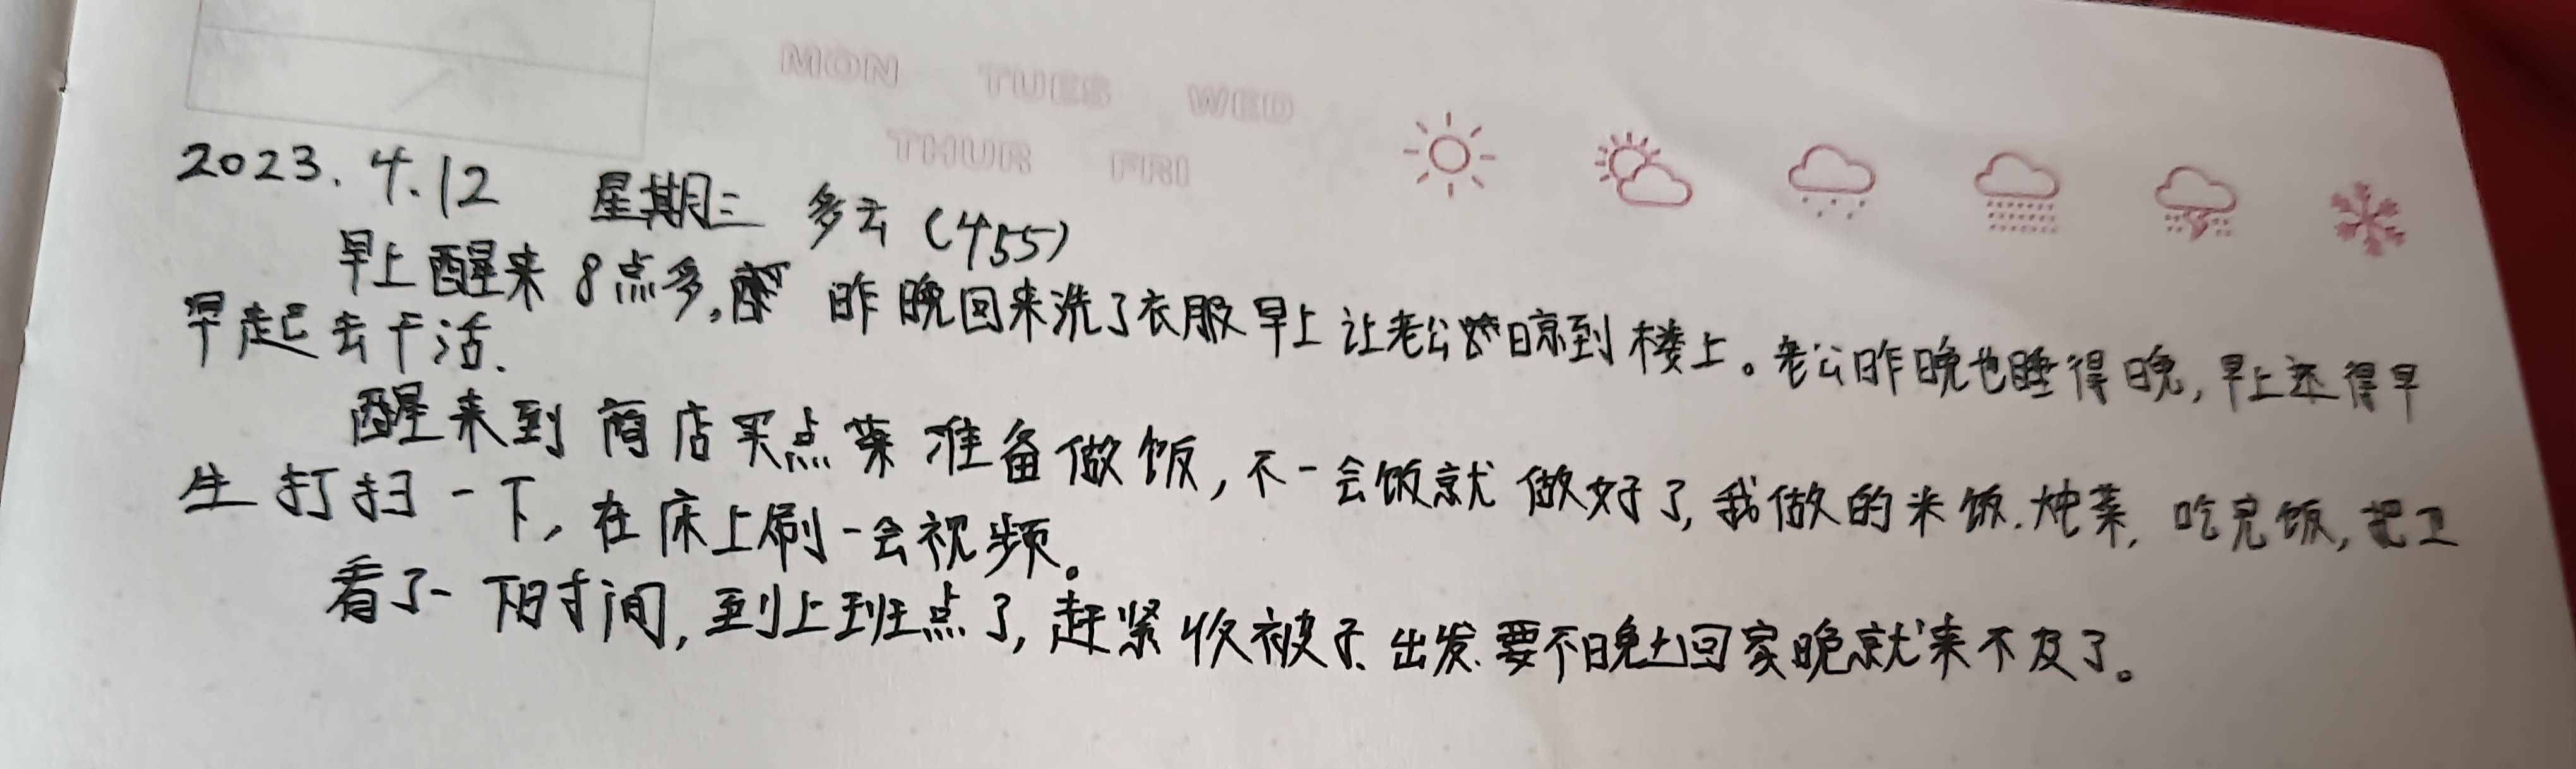 MON TUES WED
THUR FRI
2023.4.12 星期三 多云（455）
早上醒来8点多,昨晚回来洗了衣服早上让老公晾到楼上。老公昨晚也睡得晚,早上还得早
早起去干活.
醒来到商店买点菜准备做饭,不一会饭就做好了,我做的米饭.炖菜,吃完饭,把卫
生打扫一下,在床上刷一会视频。
看了一下时间,到上班点了,赶紧收被子出发.要不晚上回家晚就来不及了。